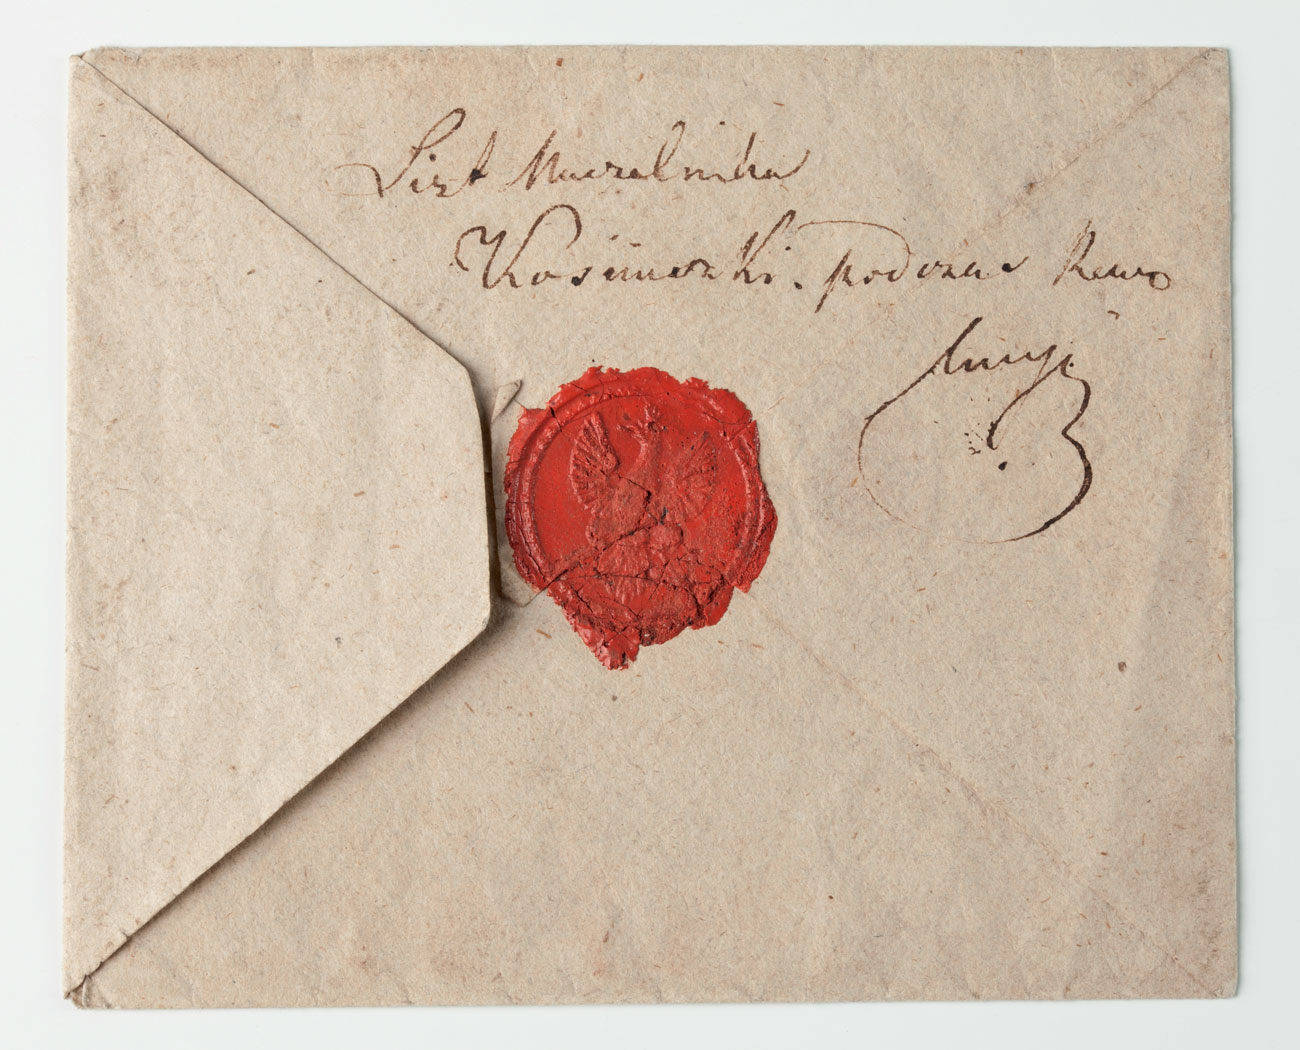 List Naczelnika
Kosciuszki. podczas Rewo
lucyi.